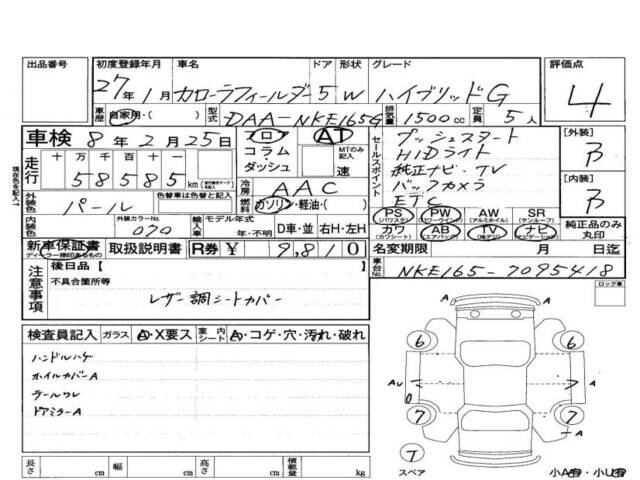 出品番号 初度登録年月 車名 ドア 形状 グレード 評価点
27年 1月 カローラフィールダー 5 W ハイブリッドG 4
車歴 自家用・( ) 型式 DAA-NKE165G 排気量 1500cc 定員 5人
車検 8年2月25日 フロア AT
コラム MTのみ記入
ダッシュ 速
走行 十 万 千 百 十 一
58585 km
冷房 AAC
外装色 パール 燃料 ガソリン・軽油・( )
内装色 外装カラーNo. 070 輸入車 モデル年式 年・不明 D車・並 右H・左H
セールスポイント プッシュスタート
HIDライト
純正ナビ・TV
バックカメラ
ETC
[外装] B
[内装] B
PS (パワステ) PW (パワーウィンド) AW (アルミホイル) SR (サンルーフ)
カワ (カワシート) AB (エアバック) TV (地デジ) ナビ (ナビゲーション)
純正品のみ丸印
新車保証書 取扱説明書 R券 ¥ 9,810 名変期限 月 日迄
ディーラー捺印あるもの
車台No. NKE165-7095418
注意事項 後日品【 】
不具合箇所等
レザー調シートカバー
ロック車
検査員記入 ガラス A・X要ス 室内シート A・コゲ・穴・汚れ・破れ
ハンドルハゲ
ホイルカバーA
テールワレ
ドアミラーA
A
6 6
AU A
7 7
A
T
スペア 小A・小U
長さ cm 幅 cm 高さ cm 積載量 kg
現在色を記入